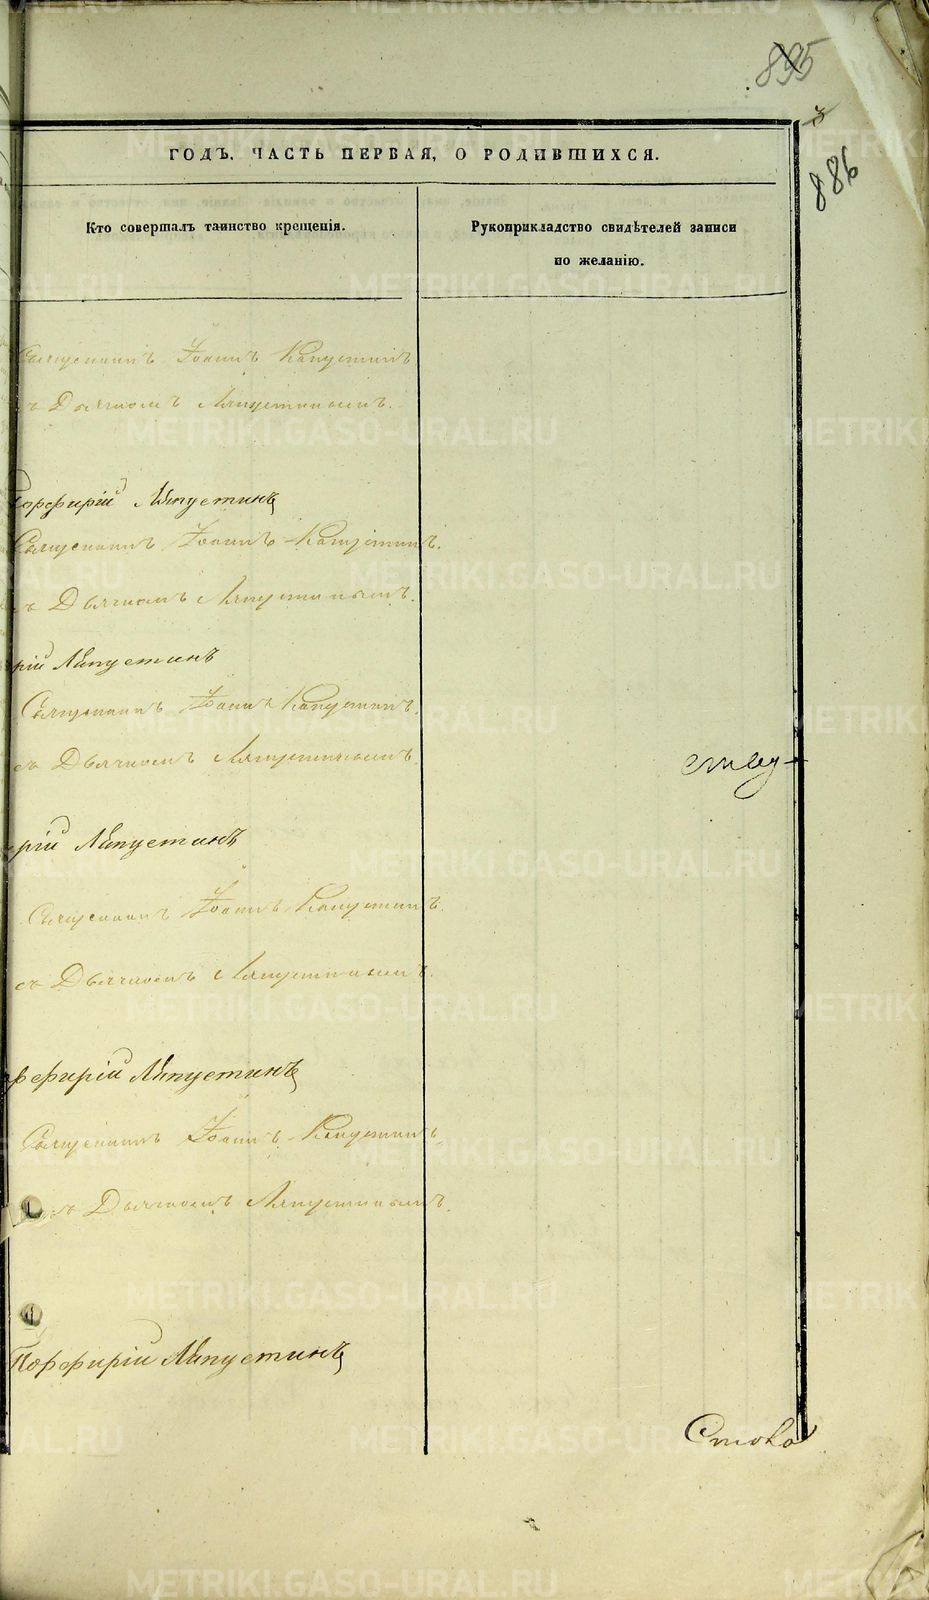 895
886
ГОДЪ. ЧАСТЬ ПЕРВАЯ, О РОДИВШИХСЯ.
Кто совершалъ таинство крещенія.
Рукоприкладство свидѣтелей записи
по желанію.
Священникъ Іоаннъ Капустинъ
съ Дьячкомъ Ляпустинымъ.
Порфирій Ляпустинъ
Священникъ Іоаннъ Капустинъ.
съ Дьячкомъ Ляпустинымъ.
рій Ляпустинъ
Священникъ Іоаннъ Капустинъ.
съ Дьячкомъ Ляпустинымъ.
рій Ляпустинъ
Священникъ Іоаннъ Капустинъ.
съ Дьячкомъ Ляпустинымъ.
рфирій Ляпустинъ
Священникъ Іоаннъ Капустинъ.
съ Дьячкомъ Ляпустинымъ.
Порфирій Ляпустинъ
METRIKI.GASO-URAL.RU